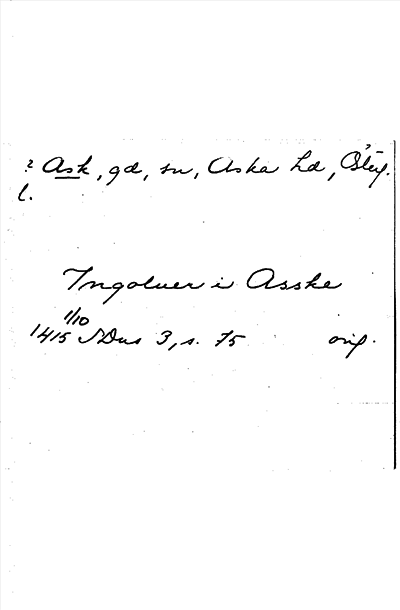 ? Ask, gd, sn, Aska hd, Östg.
l.
Ingoluer i Asske
1/10
1415 SDns 3, s. 75 orig.